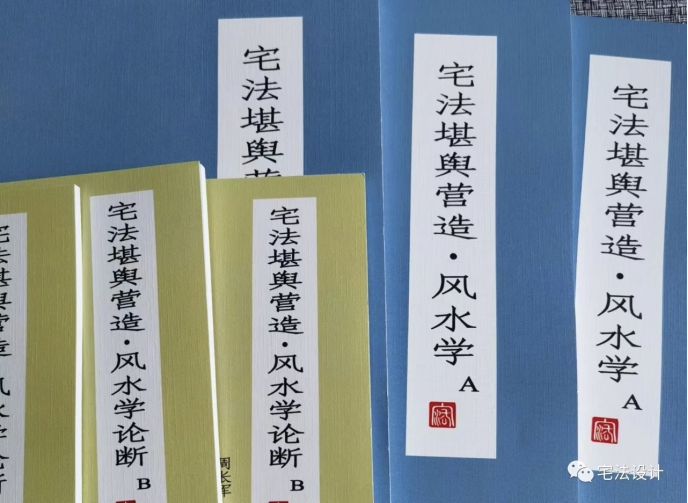 宅法堪舆营
宅法堪舆营造·风水学
A
宅法堪舆营造·风水学
A
宅法堪舆营造·风水学论断
宅法堪舆营造·风水学论断
B
宅法堪舆营造·风水学论断
B
周长军
宅法设计